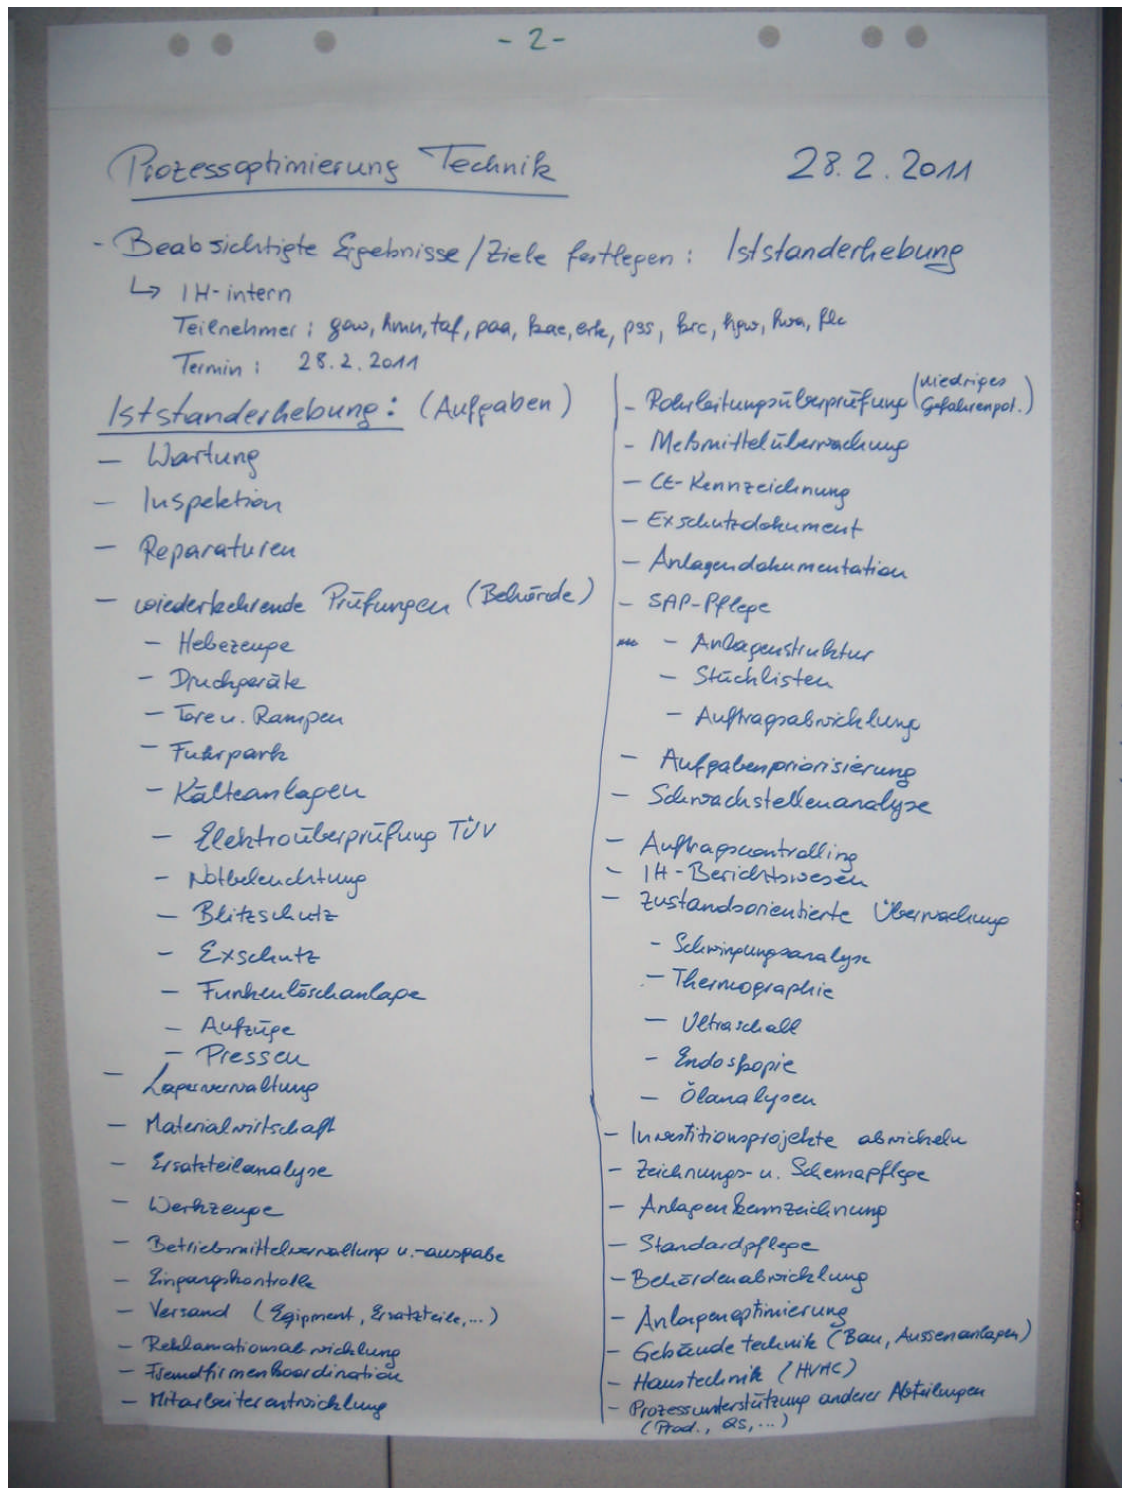 - 2 -
Prozessoptimierung Technik
28.2.2011
- Beabsichtigte Ergebnisse/Ziele festlegen: Iststanderhebung
↳ IH-intern
Teilnehmer: gaw, hmn, taf, paa, kae, erk, pss, krc, hgw, hwa, flc
Termin: 28.2.2011
Iststanderhebung: (Aufgaben)
- Wartung
- Inspektion
- Reparaturen
- wiederkehrende Prüfungen (Behörde)
- Hebezeuge
- Druckgeräte
- Tore u. Rampen
- Fuhrpark
- Kälteanlagen
- Elektroüberprüfung TÜV
- Notbeleuchtung
- Blitzschutz
- Exschutz
- Funkenlöschanlage
- Aufzüge
- Pressen
- Lagerverwaltung
- Materialwirtschaft
- Ersatzteilanalyse
- Werkzeuge
- Betriebsmittelverwaltung u.-ausgabe
- Eingangskontrolle
- Versand (Eqipment, Ersatzteile,...)
- Reklamationsabwicklung
- Fremdfirmenkoordination
- Mitarbeiterentwicklung
- Rohrleitungsüberprüfung (niedriges
Gefahrenpot.)
- Meßmittelüberwachung
- CE-Kennzeichnung
- Exschutzdokument
- Anlagendokumentation
- SAP-Pflege
- Anlagenstruktur
- Stücklisten
- Auftragsabwicklung
- Aufgabenpriorisierung
- Schwachstellenanalyse
- Auftragscontrolling
- IH-Berichtswesen
- Zustandsorientierte Überwachung
- Schwingungsanalyse
- Thermographie
- Ultraschall
- Endoskopie
- Ölanalysen
- Investitionsprojekte abwickeln
- Zeichnungs- u. Schemapflege
- Anlagenkennzeichnung
- Standardpflege
- Behördenabwicklung
- Anlagenoptimierung
- Gebäudetechnik (Bau, Aussenanlagen)
- Haustechnik (HVAC)
- Prozessunterstützung anderer Abteilungen
(Prod., QS,...)